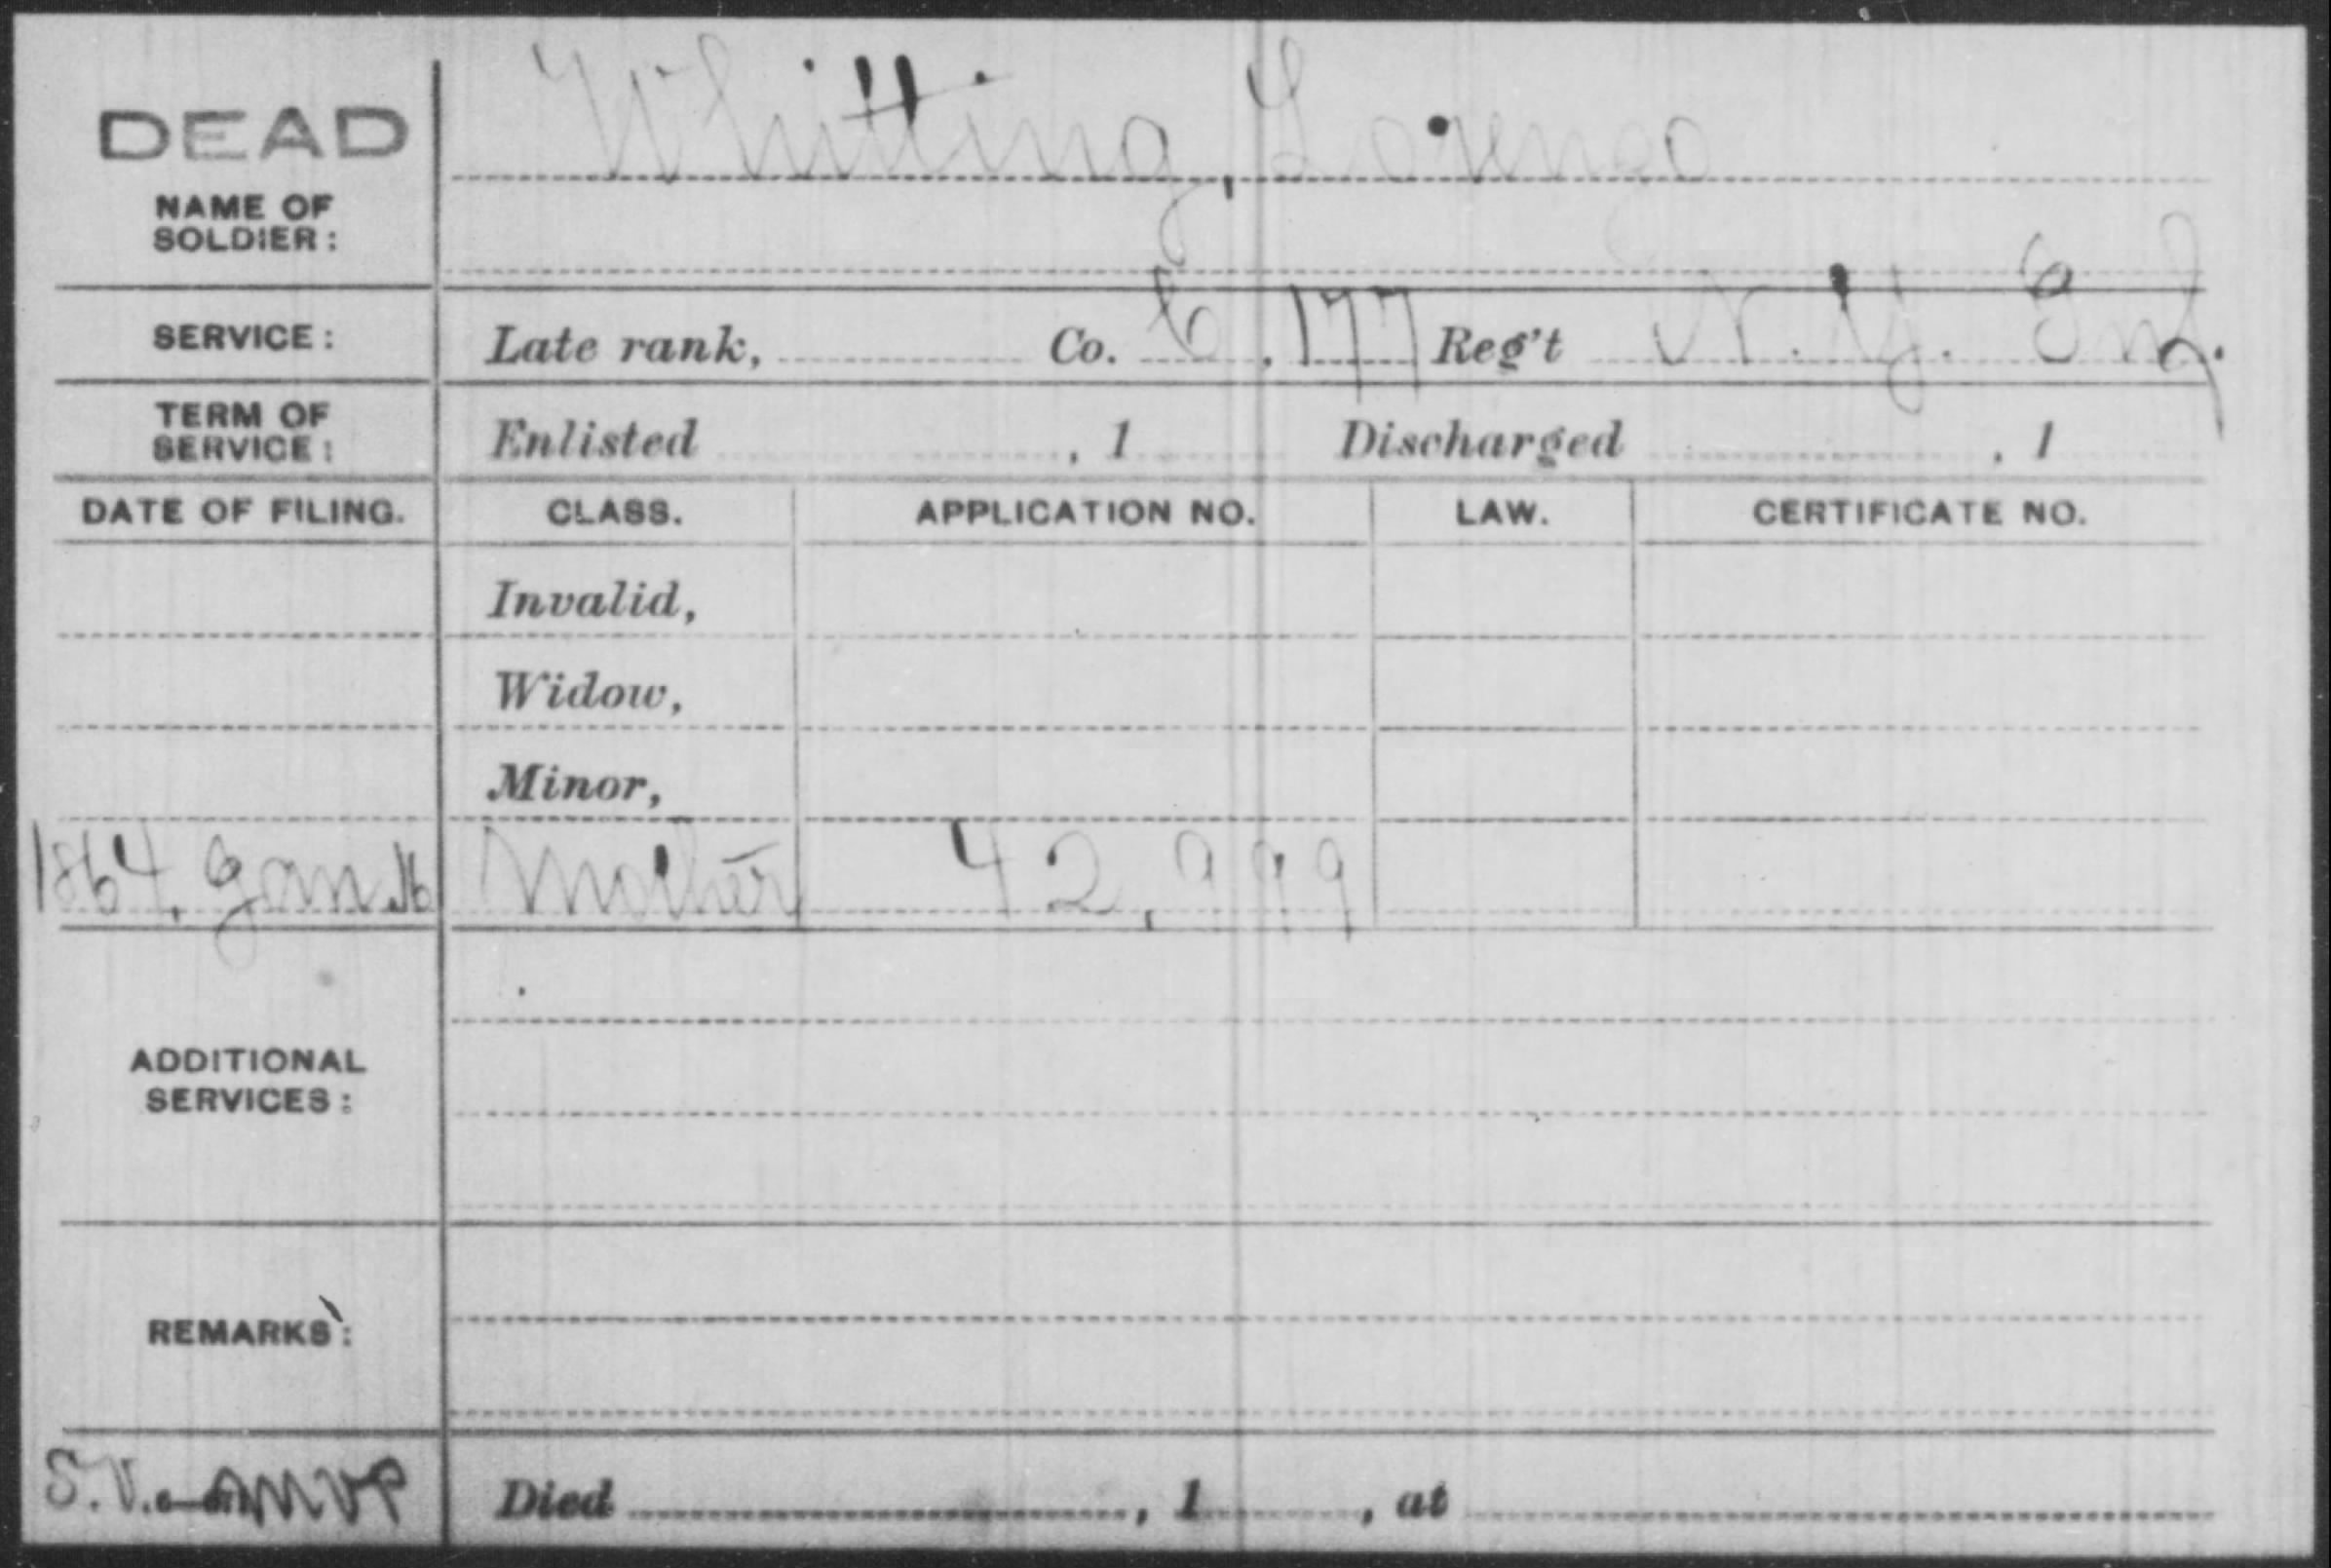 DEAD
Whitting, Lorenzo
NAME OF
SOLDIER:
SERVICE: Late rank, Co. , 177 Reg't N. Y. Inf.
TERM OF
SERVICE: Enlisted , 1 Discharged , 1
DATE OF FILING. CLASS. APPLICATION NO. LAW. CERTIFICATE NO.
Invalid,
Widow,
Minor,
1864, Jan 16 Mother 42,999
ADDITIONAL
SERVICES:
REMARKS:
S.V. Died , 1 , at